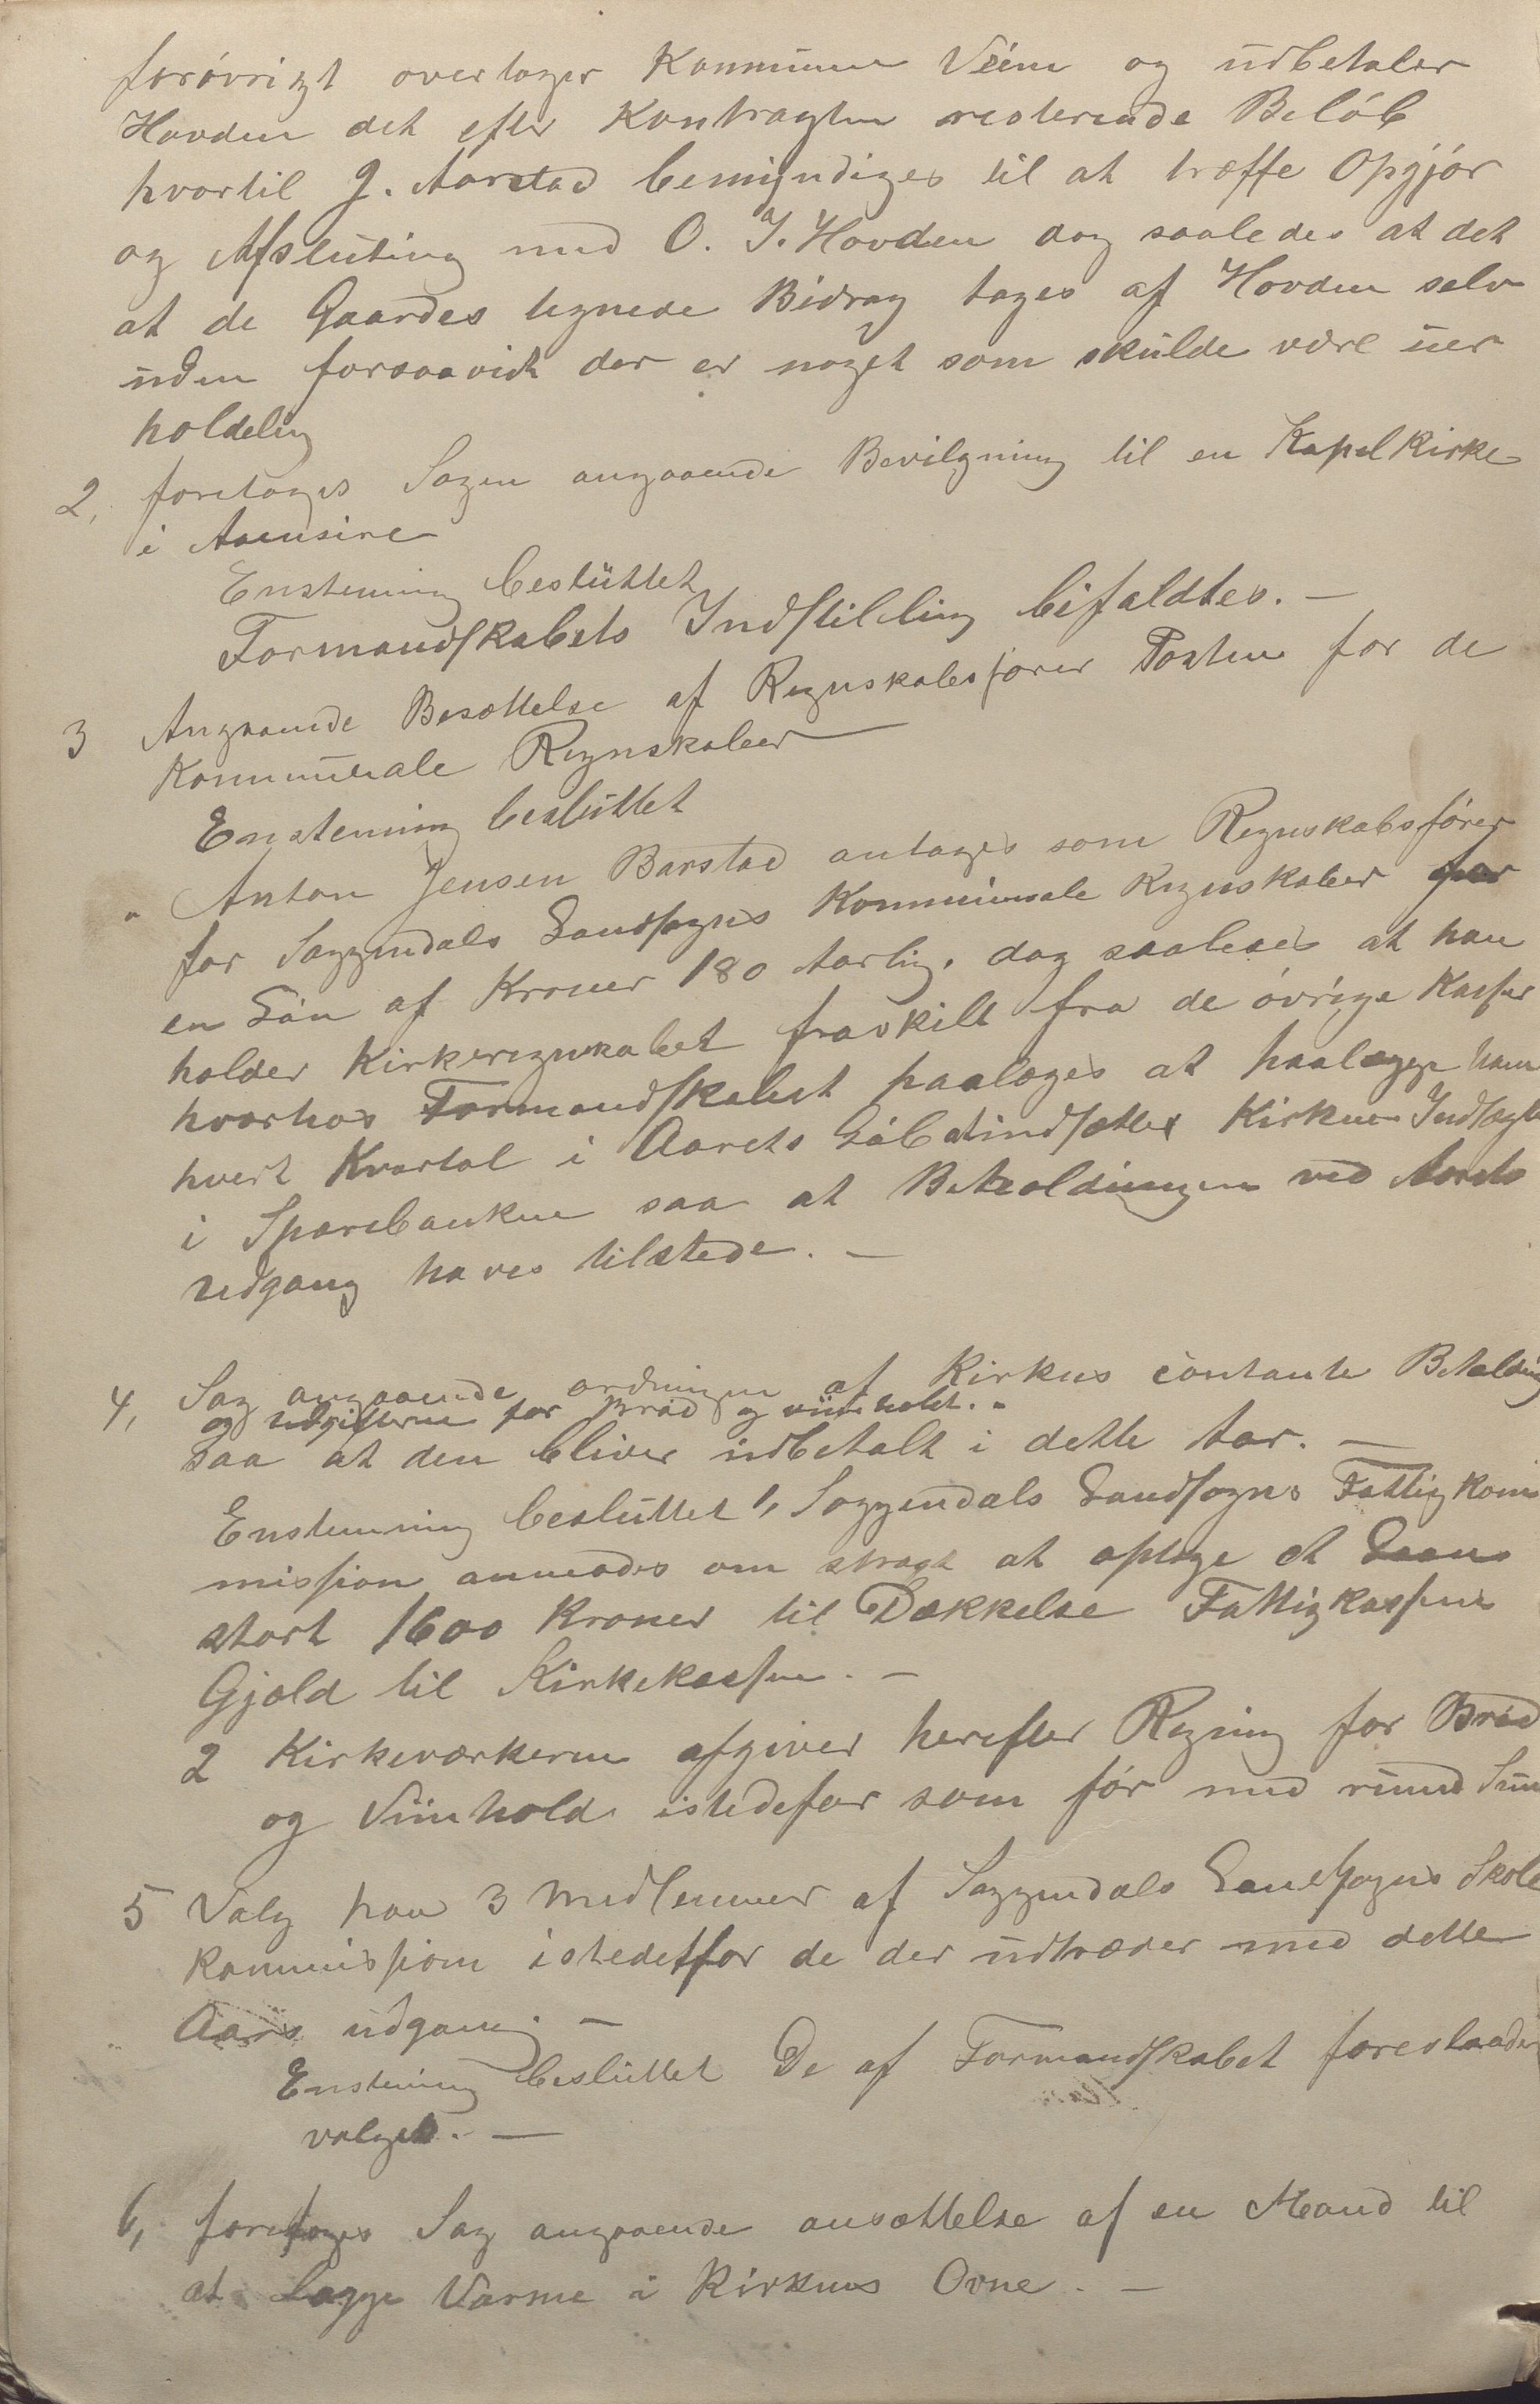 forøvrigt overtager Kommunen Veien og udbetaler
Hovden det efter Kontragten resterende Beløb
hvortil J. Aarstad bemyndiges til at træffe Opgjør
og Afsluting med O. J. Hovden dog saaledes at det
at de Gaardes lignede Bidrag tages af Hovden selv
uden forsaavidt der er noget som skulde være uer
holdelig
2, foretages Sagen angaaende Bevilgning til en Kapelkirke
i Aaensire
Enstemig besluttet
Formandskabets Indstilling bifaldtes. —
3 Angaaende Besættelse af Regnskabsfører Posten for de
Kommunale Regnskaber
Enstemig besluttet
" Anton Jensen Barstad antages som Regnskabsfører
for Soggendals Landsogns Kommunale Regnskaber for
en Løn af Kroner 180 Aarlig, dog saaledes at han
holder Kirkeregnskabet fraskilt fra de øvrige Kasser
hvorhos Formandskabet paalæges at paalægge ham
hvert Kvartal i Aarets Løb at indsætte Kirkens Indtægter
i Sparebanken saa at Beholdningen ved Aarets
udgang haves tilstede. —
4, Sag angaaende ordningen af Kirkens contante Beholdning
og udgifterne for Brød og viinhold. -
saa at den bliver indbetalt i dette Aar. —
Enstemmig besluttet 1, Soggendals Landsogns Fattigkom
mission anmodes om stragt at optage et Laan
stort 1600 Kroner til Dækkelse Fattigkassens
Gjæld til Kirkekassen. —
2 Kirkeværkerne afgiver herefter Regning for Brød
og Viinhold istedefor som før med rund Sum
5 Valg paa 3 Medlemmer af Soggendals Landsogns Skole
kommission istedetfor de der udtræder med dette
Aars udgang. —
Enstemig besluttet De af Formandskabet foreslaaede
valges. —
6, foretages Sag angaaende ansættelse af en Mand til
at lægge Varme i Kirkens Ovne. —